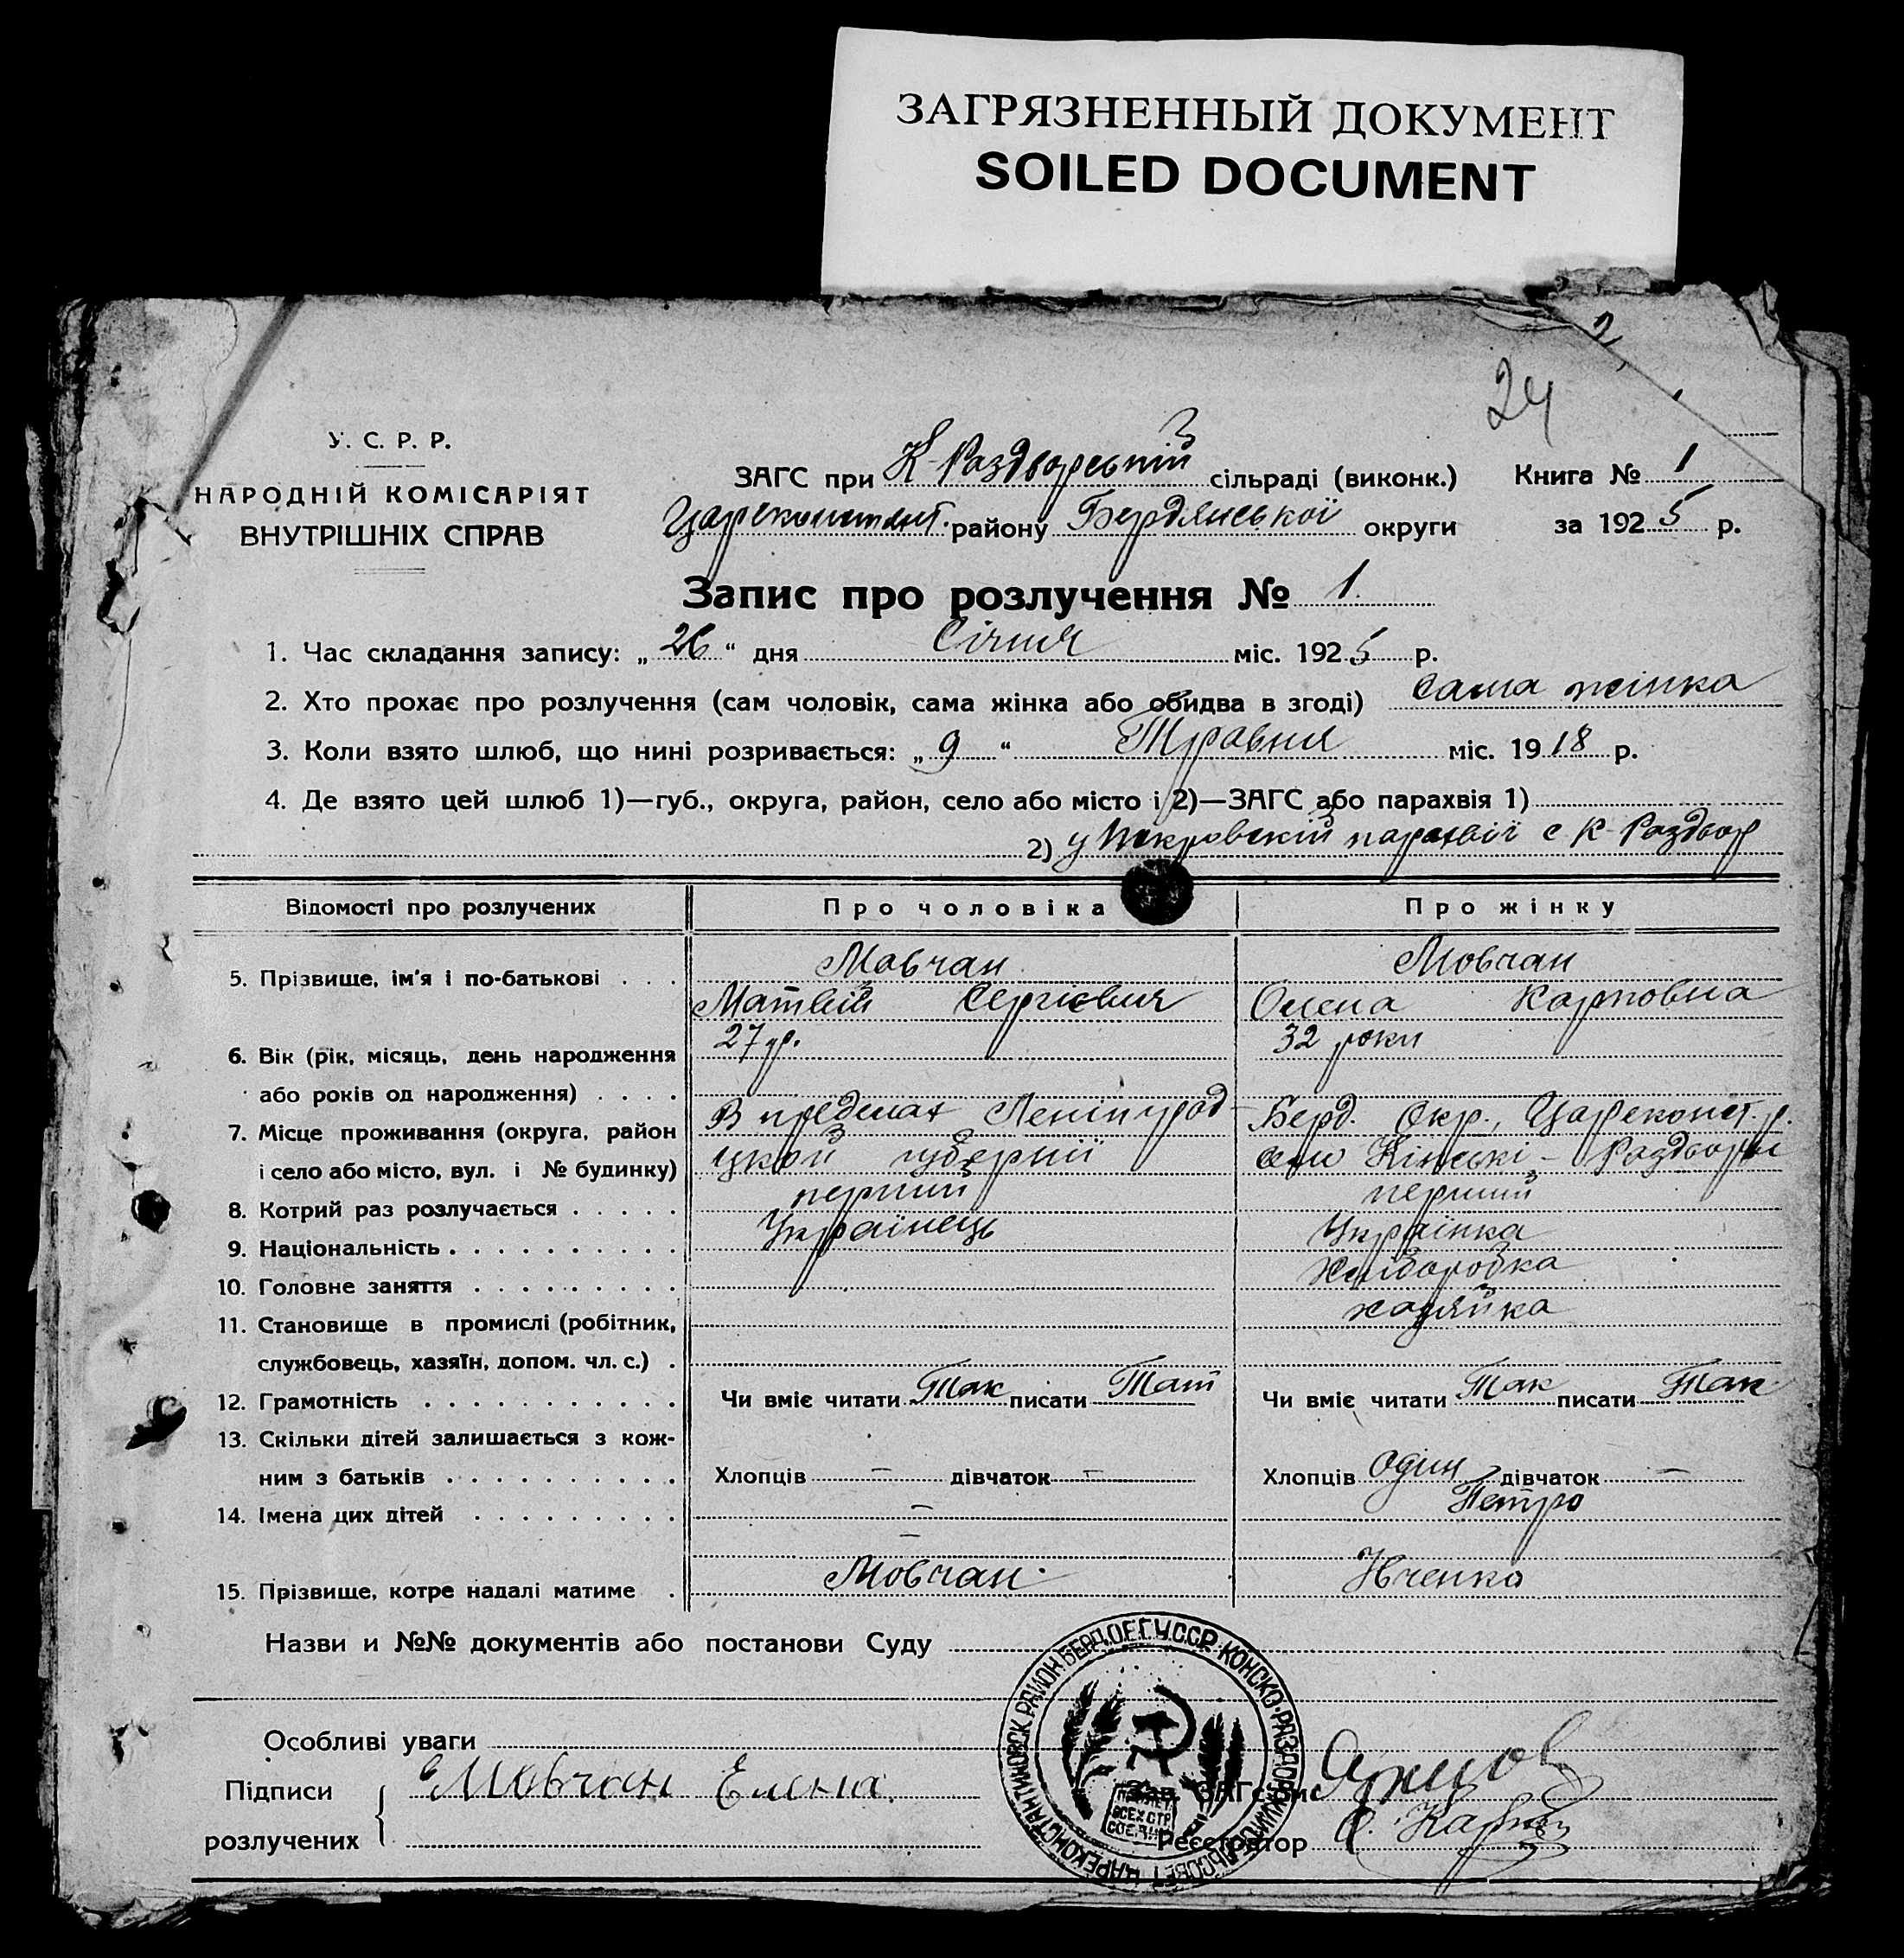 ЗАГРЯЗНЕННЫЙ ДОКУМЕНТ
SOILED DOCUMENT
24
У. С. Р. Р.
НАРОДНІЙ КОМІСАРІЯТ
ВНУТРІШНІХ СПРАВ
ЗАГС при К-Роздворській сільраді (виконк.) Книга № 1
Цареконстант. району Бердянської округи за 1925 р.
Запис про розлучення № 1
1. Час складання запису: „26“ дня Січня міс. 1925 р.
2. Хто прохає про розлучення (сам чоловік, сама жінка або обидва в згоді) сама жінка
3. Коли взято шлюб, що нині розривається: „9“ Травня міс. 1918 р.
4. Де взято цей шлюб 1)—губ., округа, район, село або місто і 2)—ЗАГС або парахвія 1)
2) у Покровській парахвії с К-Роздор
Відомості про розлучених Про чоловіка Про жінку
5. Прізвище, ім'я і по-батькові Мовчан Мовчан
Матвій Сергієвич Олена Карповна
6. Вік (рік, місяць, день народження 27 р. 32 роки
або років од народження)
7. Місце проживання (округа, район В пределах Ленінград- Берд. Окр., Цареконст. р.
і село або місто, вул. і № будинку) цкой губернії село Кінські-Роздоры
8. Котрий раз розлучається перший перший
9. Національність Українець Українка
10. Головне заняття Хліборобка
11. Становище в промислі (робітник, хазяйка
службовець, хазяїн, допом. чл. с.)
12. Грамотність Чи вміє читати Так писати Так Чи вміє читати Так писати Так
13. Скільки дітей залишається з кож-
ним з батьків Хлопців — дівчаток — Хлопців один дівчаток —
14. Імена цих дітей — Петро
—
15. Прізвище, котре надалі матиме Мовчан Ївченко
Назви и №№ документів або постанови Суду
Особливі уваги
Підписи Мовчан Елена.
розлучених
Зав. ЗАГС'ом
Реєстратор
ЦАРЕКОНСТАНТИНОВСК РАЙОН БЕРД.
У.С.С.Р. КОНСКО-РАЗДОРСКИЙ СЕЛЬСОВЕТ
ПРОЛЕТ.
ВСЕХ СТР.
СОЕДИН.